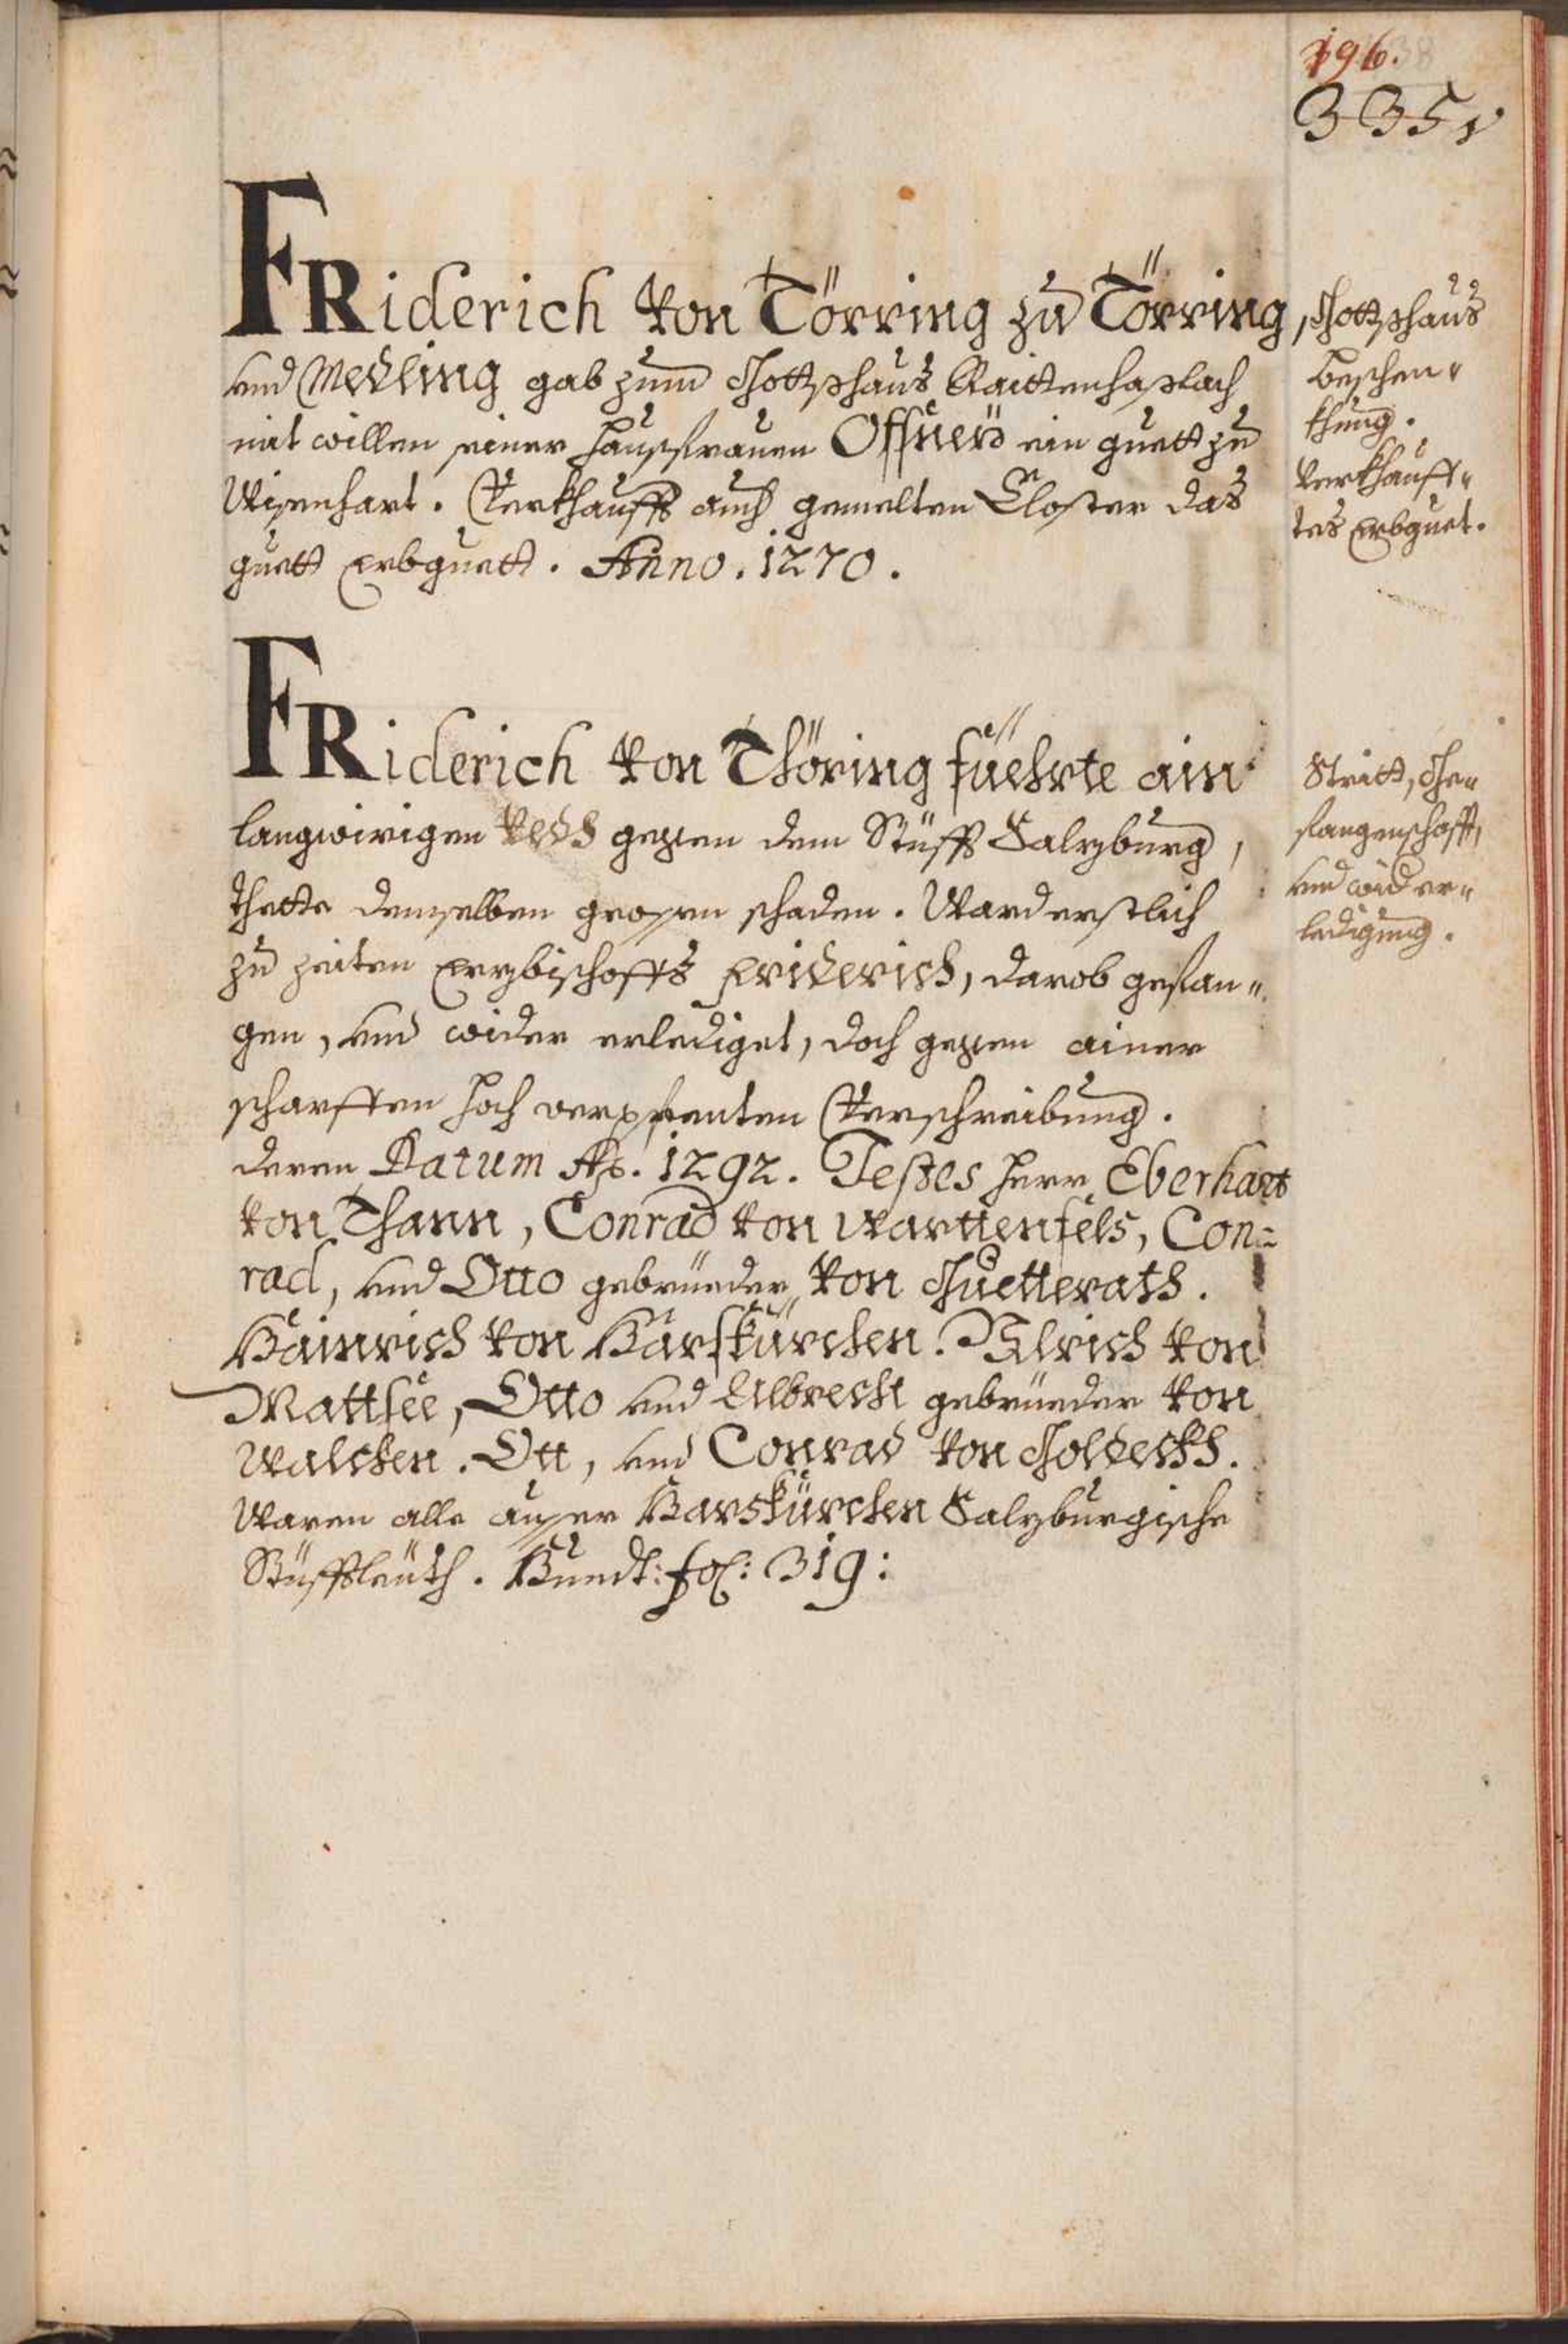 196.
335
FRiderich von Törring zu Törring,
vnd Medling gab zum Gottshaus Raittenhaslach
mit willen seiner haussfrauen Offney ein guett zu
Wisenhart. Verkhaufft auch gemelten Closter das
guett Erbguett. Anno. 1270.
Gottshaus
beschen-
khung.
verkhauff-
tes Erbguet.
FRiderich von Thöring füehrte ain
langwirigen vechd gegen dem Stüfft Salzburg,
thette demselben grossen schaden. Ward erstlich
zu zeiten Erzbischoffs Friderich, darob gefan-
gen, vnd wider erlediget, doch gegen ainer
scharffen hoch verpfenten Verschreibung.
deren Datum Ao. 1292. Testes herr Eberhart
von Thann, Conrad von Warttenfels, Con-
rad, vnd Otto gebrüeder von Guetterath.
Hainrich von Harskürchen. Ulrich von
Mattsee, Otto vnd Albrecht gebrüeder von
Walchen. Ott, vnd Conrad von Goldeckh.
Waren alle ausser Harskürchen Salzburgische
Stüfftsleüth. Hundt: fol: 319:
Stritt, Ge-
fangenschafft,
vnd wider er-
ledigung.